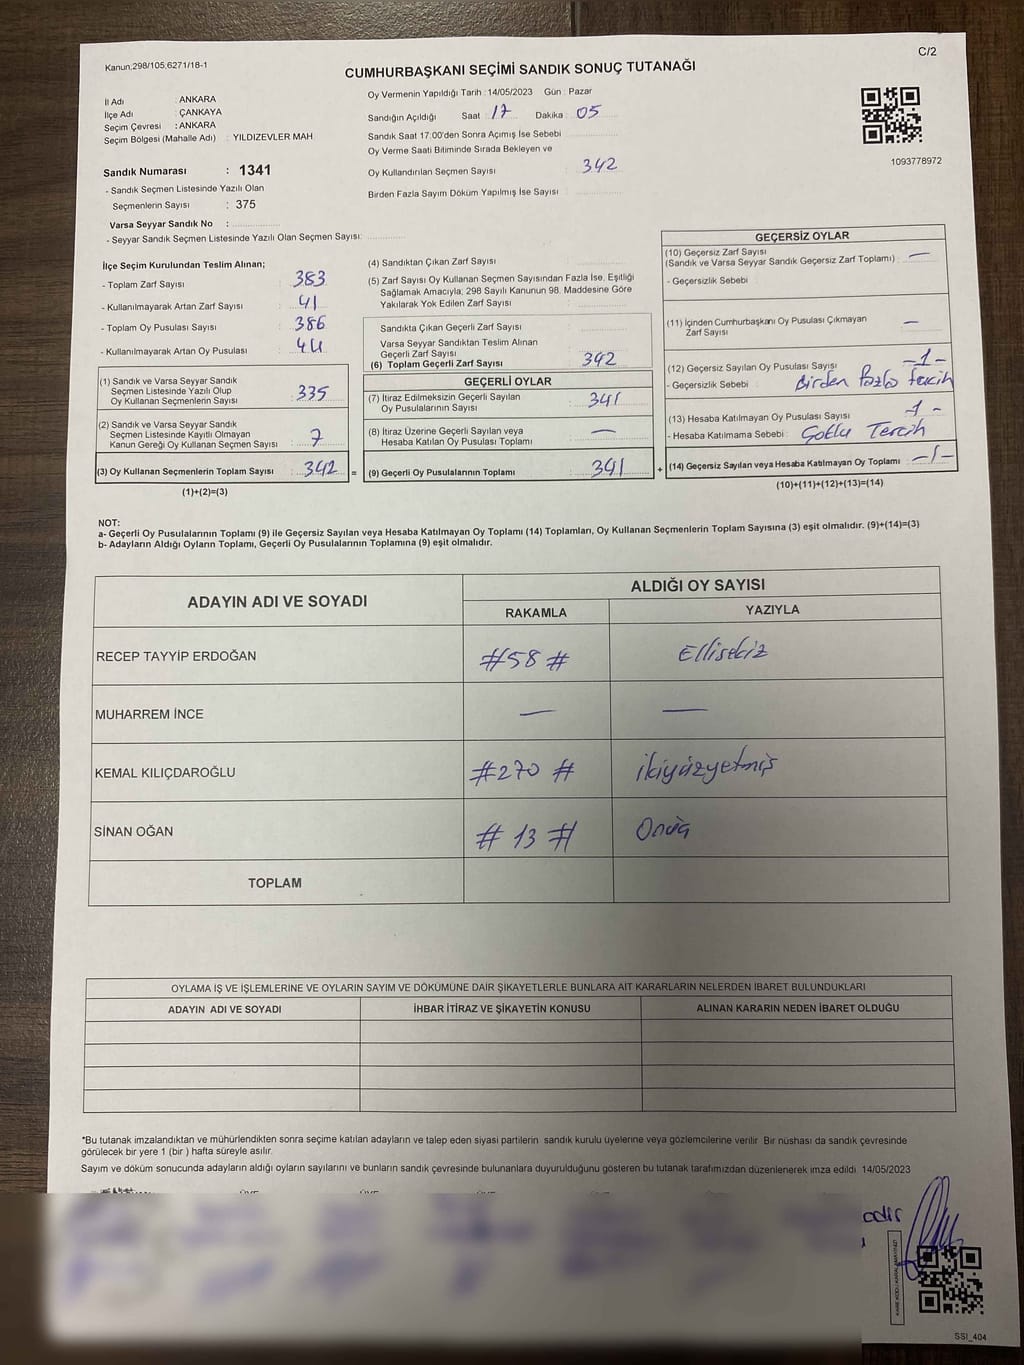 C/2
Kanun:298/105,6271/18-1
CUMHURBAŞKANI SEÇİMİ SANDIK SONUÇ TUTANAĞI
İl Adı : ANKARA
İlçe Adı : ÇANKAYA
Seçim Çevresi : ANKARA
Seçim Bölgesi (Mahalle Adı) : YILDIZEVLER MAH
Oy Vermenin Yapıldığı Tarih : 14/05/2023 Gün : Pazar
Sandığın Açıldığı Saat : 17 Dakika : 05
Sandık Saat 17:00'den Sonra Açımış İse Sebebi
Oy Verme Saati Bitiminde Sırada Bekleyen ve
Oy Kullandırılan Seçmen Sayısı : 342
Birden Fazla Sayım Döküm Yapılmış İse Sayısı :
1093778972
Sandık Numarası : 1341
- Sandık Seçmen Listesinde Yazılı Olan
Seçmenlerin Sayısı : 375
Varsa Seyyar Sandık No :
- Seyyar Sandık Seçmen Listesinde Yazılı Olan Seçmen Sayısı:
İlçe Seçim Kurulundan Teslim Alınan;
- Toplam Zarf Sayısı : 383
- Kullanılmayarak Artan Zarf Sayısı : 41
- Toplam Oy Pusulası Sayısı : 386
- Kullanılmayarak Artan Oy Pusulası : 44
(1) Sandık ve Varsa Seyyar Sandık
Seçmen Listesinde Yazılı Olup
Oy Kullanan Seçmenlerin Sayısı : 335
(2) Sandık ve Varsa Seyyar Sandık
Seçmen Listesinde Kayıtlı Olmayan
Kanun Gereği Oy Kullanan Seçmen Sayısı : 7
(3) Oy Kullanan Seçmenlerin Toplam Sayısı : 342 =
(1)+(2)=(3)
(4) Sandıktan Çıkan Zarf Sayısı :
(5) Zarf Sayısı Oy Kullanan Seçmen Sayısından Fazla İse, Eşitliği
Sağlamak Amacıyla; 298 Sayılı Kanunun 98. Maddesine Göre
Yakılarak Yok Edilen Zarf Sayısı :
Sandıkta Çıkan Geçerli Zarf Sayısı
Varsa Seyyar Sandıktan Teslim Alınan
Geçerli Zarf Sayısı
(6) Toplam Geçerli Zarf Sayısı : 342
GEÇERLİ OYLAR
(7) İtiraz Edilmeksizin Geçerli Sayılan
Oy Pusulalarının Sayısı : 341
(8) İtiraz Üzerine Geçerli Sayılan veya
Hesaba Katılan Oy Pusulası Toplamı : —
(9) Geçerli Oy Pusulalarının Toplamı : 341 +
GEÇERSİZ OYLAR
(10) Geçersiz Zarf Sayısı
(Sandık ve Varsa Seyyar Sandık Geçersiz Zarf Toplamı) : —
- Geçersizlik Sebebi :
(11) İçinden Cumhurbaşkanı Oy Pusulası Çıkmayan
Zarf Sayısı : —
(12) Geçersiz Sayılan Oy Pusulası Sayısı : -1-
- Geçersizlik Sebebi : Birden fazla tercih
(13) Hesaba Katılmayan Oy Pusulası Sayısı : -1-
- Hesaba Katılmama Sebebi : Çoklu Tercih
(14) Geçersiz Sayılan veya Hesaba Katılmayan Oy Toplamı : -1-
(10)+(11)+(12)+(13)=(14)
NOT:
a- Geçerli Oy Pusulalarının Toplamı (9) ile Geçersiz Sayılan veya Hesaba Katılmayan Oy Toplamı (14) Toplamları, Oy Kullanan Seçmenlerin Toplam Sayısına (3) eşit olmalıdır. (9)+(14)=(3)
b- Adayların Aldığı Oyların Toplamı, Geçerli Oy Pusulalarının Toplamına (9) eşit olmalıdır.
ADAYIN ADI VE SOYADI ALDIĞI OY SAYISI
RAKAMLA YAZIYLA
RECEP TAYYİP ERDOĞAN #58# Ellisekiz
MUHARREM İNCE — —
KEMAL KILIÇDAROĞLU #270# ikiyüzyetmiş
SİNAN OĞAN #13# Onüç
TOPLAM
OYLAMA İŞ VE İŞLEMLERİNE VE OYLARIN SAYIM VE DÖKÜMÜNE DAİR ŞİKAYETLERLE BUNLARA AİT KARARLARIN NELERDEN İBARET BULUNDUKLARI
ADAYIN ADI VE SOYADI İHBAR İTİRAZ VE ŞİKAYETİN KONUSU ALINAN KARARIN NEDEN İBARET OLDUĞU
*Bu tutanak imzalandıktan ve mühürlendikten sonra seçime katılan adayların ve talep eden siyasi partilerin sandık kurulu üyelerine veya gözlemcilerine verilir. Bir nüshası da sandık çevresinde
görülecek bir yere 1 (bir ) hafta süreyle asılır.
Sayım ve döküm sonucunda adayların aldığı oyların sayılarını ve bunların sandık çevresinde bulunanlara duyurulduğunu gösteren bu tutanak tarafımızdan düzenlenerek imza edildi. 14/05/2023
SSI_404